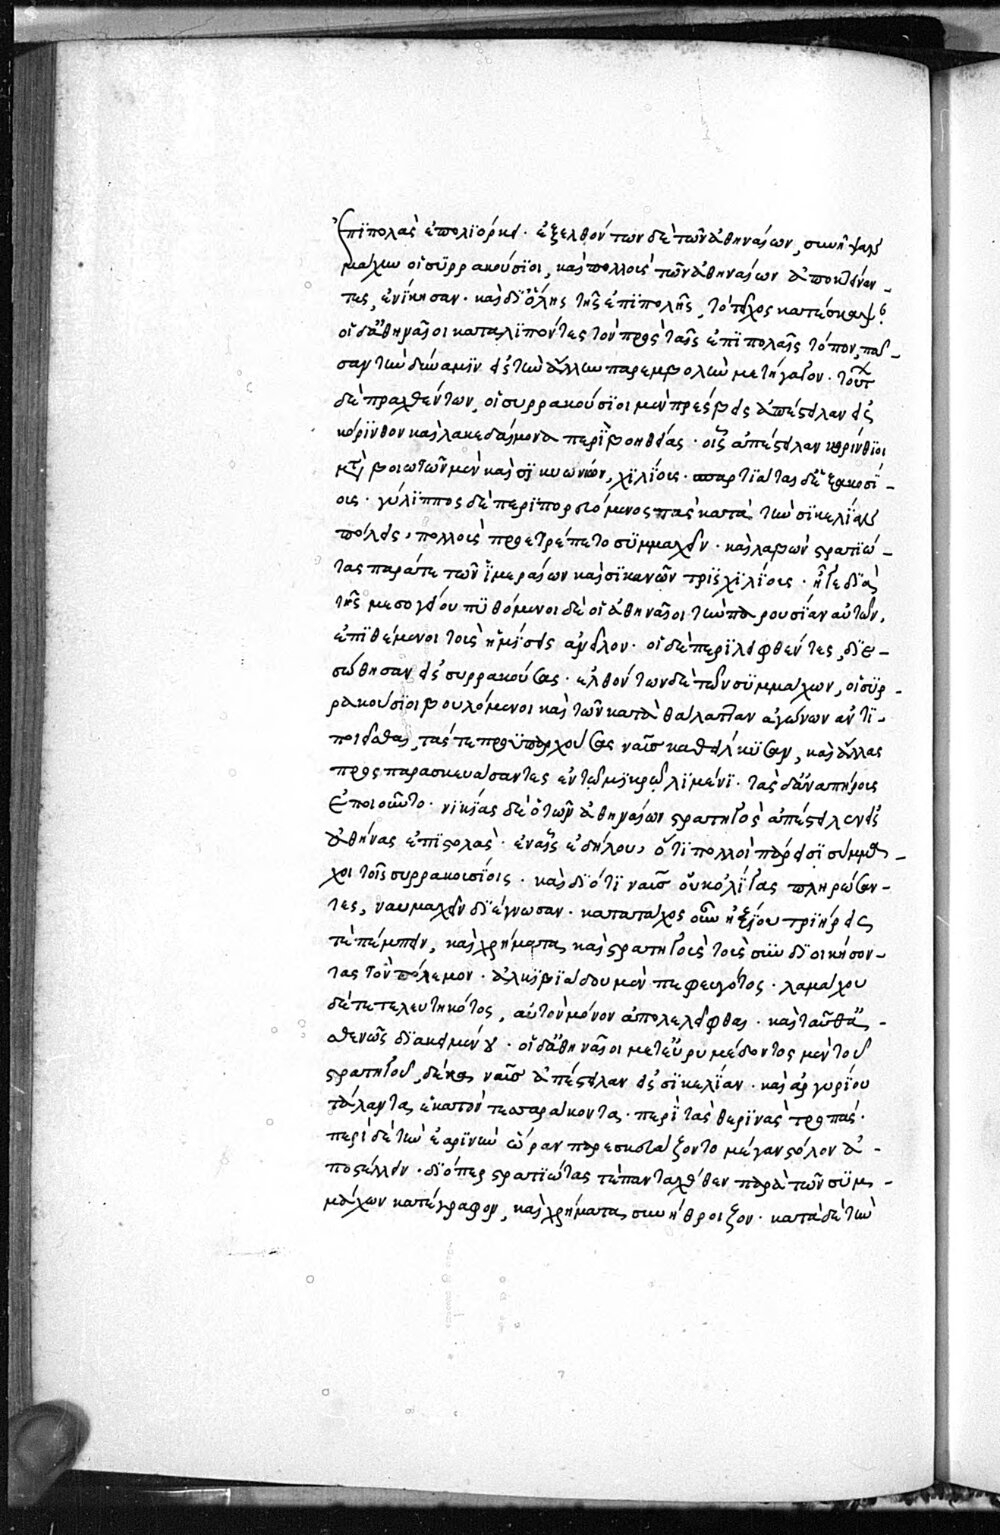 ἐπϊπολὰς ἐπολϊόρκει· ἐξελθόντων δὲ τῶν ἀθηναίων, συνῆψαν
μάχην οἱ συρρακούσϊοι, καὶ πολλοὺς τῶν ἀθηναίων ἀποκτείναν-
τες, ἐνίκησαν· καὶ δϊ' ὅλης τῆς ἐπϊπολῆς, τὸ τεῖχος κατέσκαψαν·
οἱ δ' ἀθηναῖοι καταλϊπόντες τὸν πρὸς ταῖς ἐπϊπολαῖς τόπον, πᾶ-
σαν τὴν δύναμϊν εἰς τὴν ἄλλην παρεμβολὴν μετήγαγον· τούτων
δὲ πραχθέντων, οἱ συρρακούσϊοι μὲν πρέσβεις ἀπέστειλαν εἰς
κόρϊνθον καὶ λακεδαίμονα περὶ βοηθείας· οἷς ἀπέστειλαν κορίνθϊοι
μετὰ βοιωτῶν μὲν καὶ σϊκυωνίων, χϊλίους· σπαρτϊάται δὲ ἑξακοσί-
ους· γύλϊππος δὲ περϊπορευόμενος τὰς κατὰ τὴν σϊκελίαν
πόλεις, πολλοὺς προετρέπετο συμμαχεῖν· καὶ λαβὼν στρατϊώ-
τας παρά τε τῶν ἱμεραίων καὶ σϊκανῶν τρϊσχϊλίους· ἦγε δϊὰ
τῆς μεσογείου· πϋθόμενοι δὲ οἱ ἀθηναῖοι τὴν παρουσίαν αὐτῶν,
ἐπϊθέμενοι τοὺς ἡμίσεις ἀνεῖλον· οἱ δὲ περϊλειφθέντες, δϊε-
σώθησαν εἰς συρρακούσας· ἐλθόντων δὲ τῶν συμμάχων, οἱ συρ-
ρακούσϊοι βουλόμενοι καὶ τῶν κατὰ θάλατταν ἀγώνων ἀντϊ-
ποιεῖσθαι, τάς τε προϋπαρχούσας ναῦς καθείλκϋσαν, καὶ ἄλλας
προσπαρασκευάσαντες ἐν τῷ μϊκρῷ λϊμένϊ· τὰς δ' ἀναπείρους
ἐποιοῦντο· νϊκίας δὲ ὁ τῶν ἀθηναίων στρατηγὸς ἀπέστειλεν εἰς
ἀθήνας ἐπϊστολάς· ἐν αἷς ἐδήλου, ὅτϊ πολλοὶ πάρεισϊ σύμμα-
χοι τοῖς συρρακουσίοις· καὶ δϊότϊ ναῦς οὐκ ὀλίγας πληρώσαν-
τες, ναυμαχεῖν δϊέγνωσαν· κατατάχος οὖν ἠξίου τρϊήρεις
τε πέμπειν, καὶ χρήματα, καὶ στρατηγοὺς τοὺς συνδϊοικήσον-
τας τὸν πόλεμον· ἀλκϊβϊάδου μὲν πεφευγότος· λαμάχου
δὲ τετελευτηκότος, αὐτὸν μόνον ἀπολελεῖφθαι· καὶ ταῦθ' ἀ-
σθενῶς δϊακειμένου· οἱ δ' ἀθηναῖοι μετ' εὐρυμέδοντος μὲν τοῦ
στρατηγοῦ, δέκα ναῦς ἀπέστειλαν εἰς σϊκελίαν· καὶ ἀργυρίου
τάλαντα, ἑκατὸν τεσσαράκοντα· περὶ τὰς θερϊνὰς τροπάς·
περὶ δὲ τὴν ἐαρϊνὴν ὥραν παρεσκευάζοντο μέγαν στόλον ἀ-
ποστέλλειν· δϊόπερ στρατϊώτας τε πανταχόθεν παρὰ τῶν συμ-
μάχων κατέγραφον, καὶ χρήματα συνήθροιζον· κατὰ δὲ τὴν